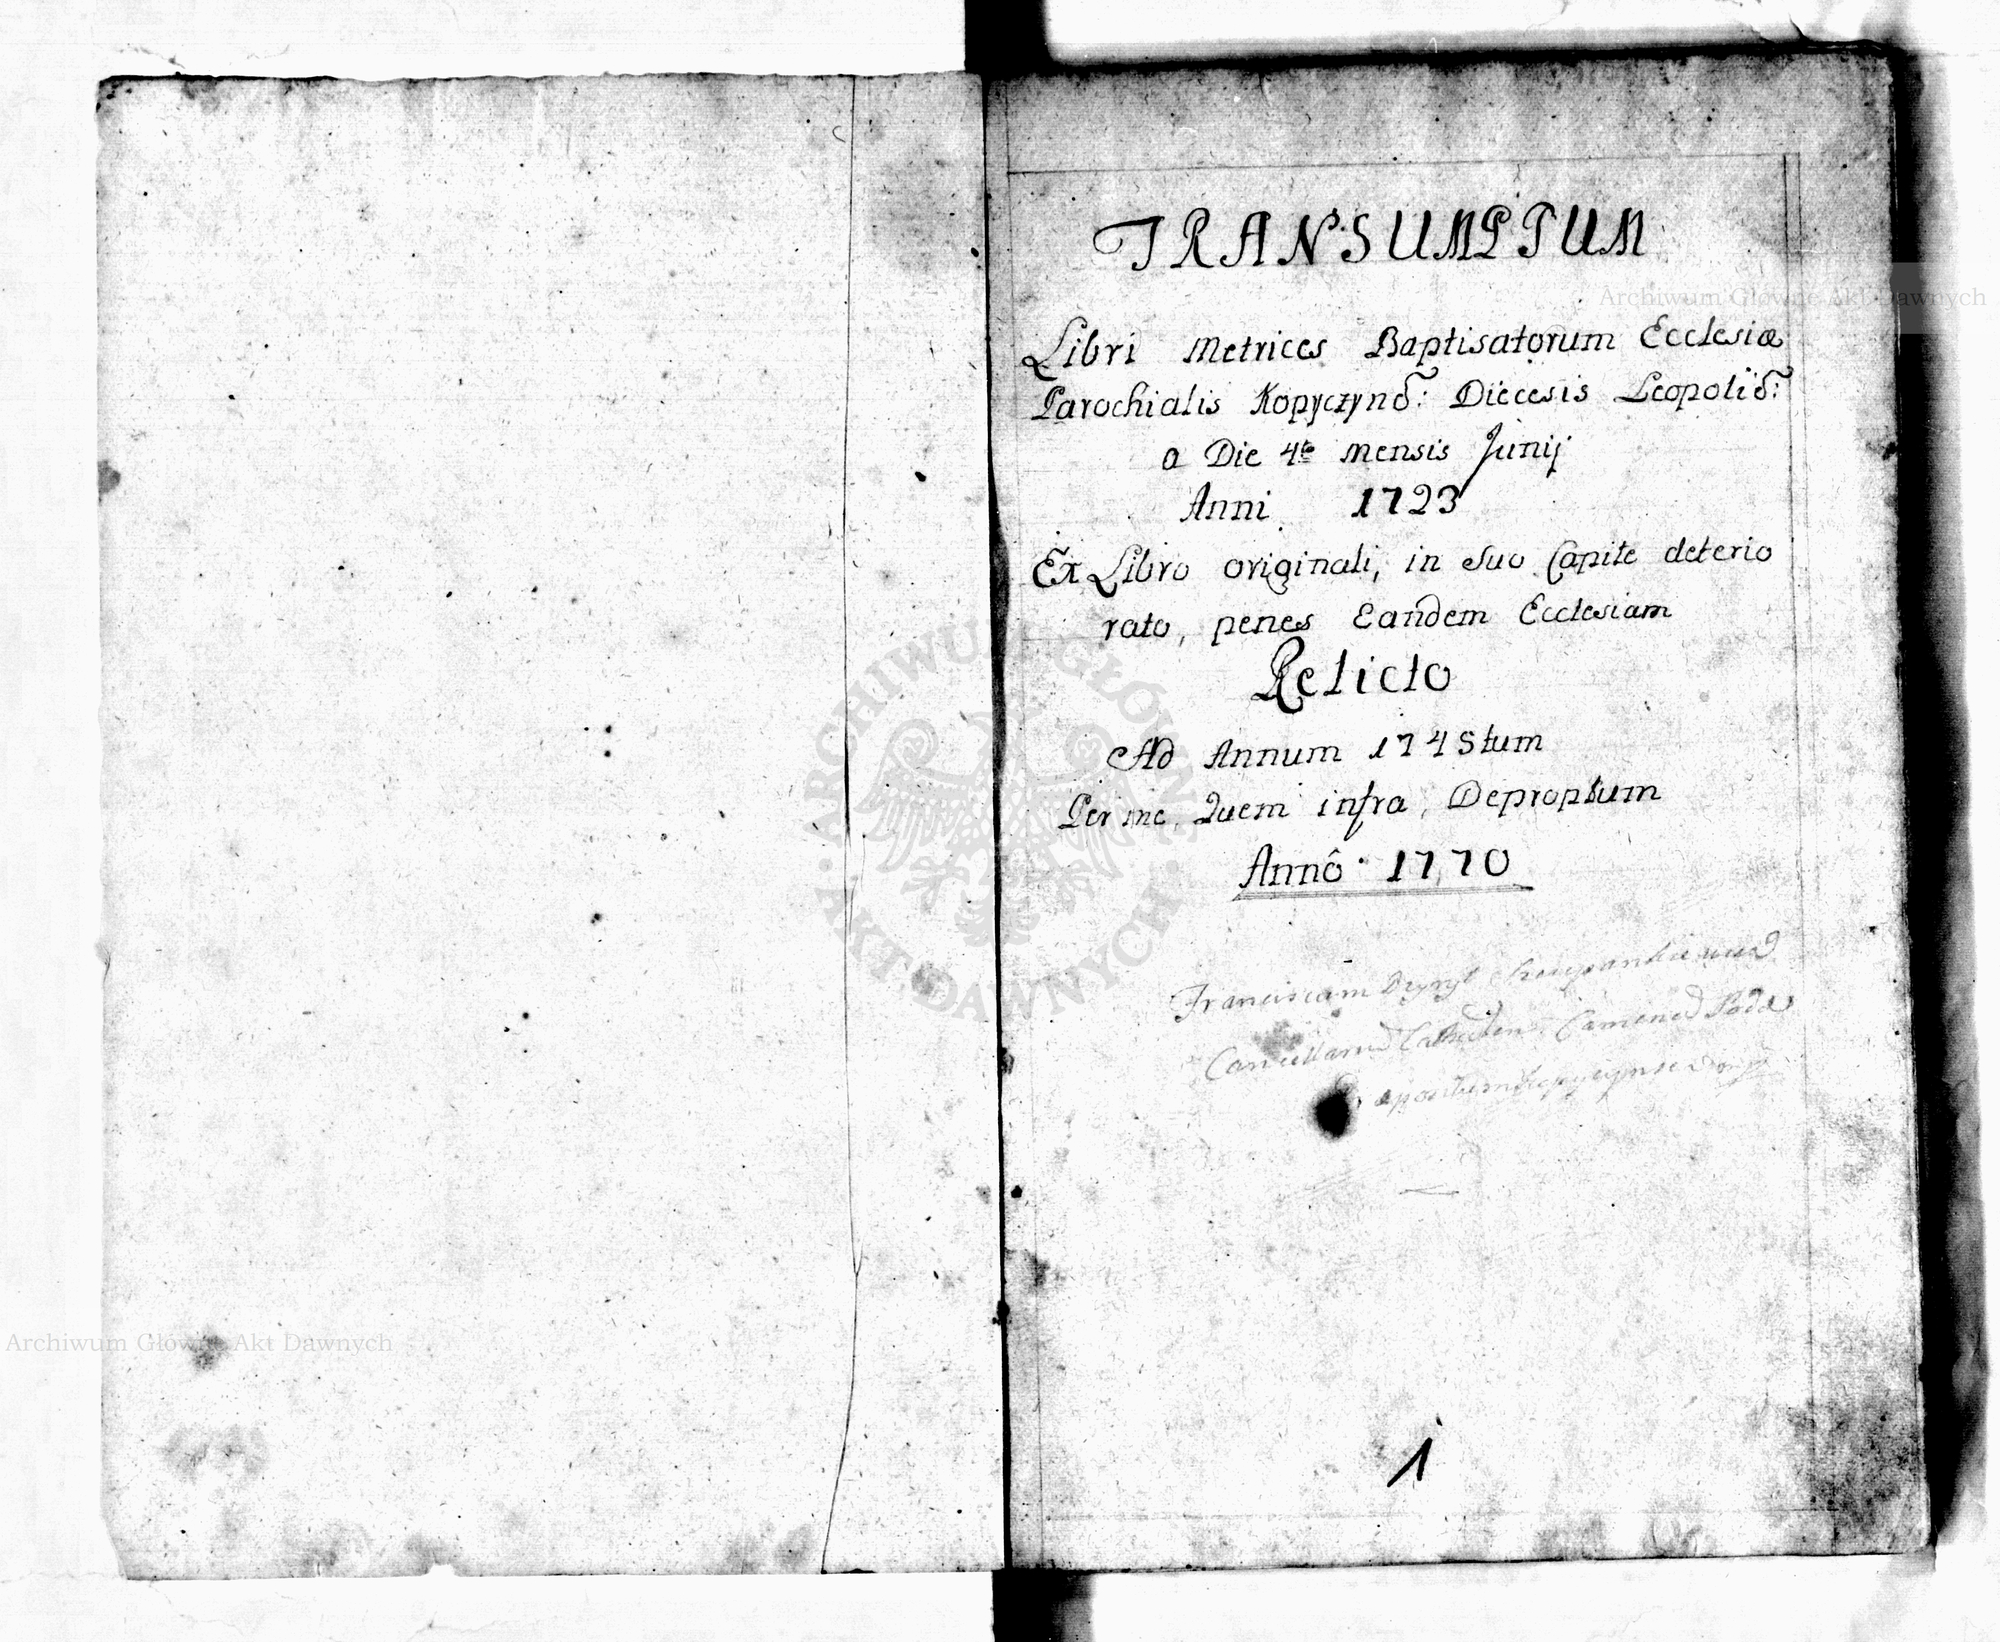 TRANSUMPTUM
Libri Metrices Baptisatorum Ecclesiæ
Parochialis Kopyczynõ: Diecesis Leopoliõ:
a Die 4ta mensis Junij
Anni 1723
Ex Libro originali, in suo Capite deterio
rato, penes Eandem Ecclesiam
Relicto
Ad Annum 1745tum
Per me, Quem infra, Depromptum
Annô 1770
Franciscum
1
Archiwum Główne Akt Dawnych
ARCHIWUM GŁÓWNE AKT DAWNYCH
Archiwum Główne Akt Dawnych